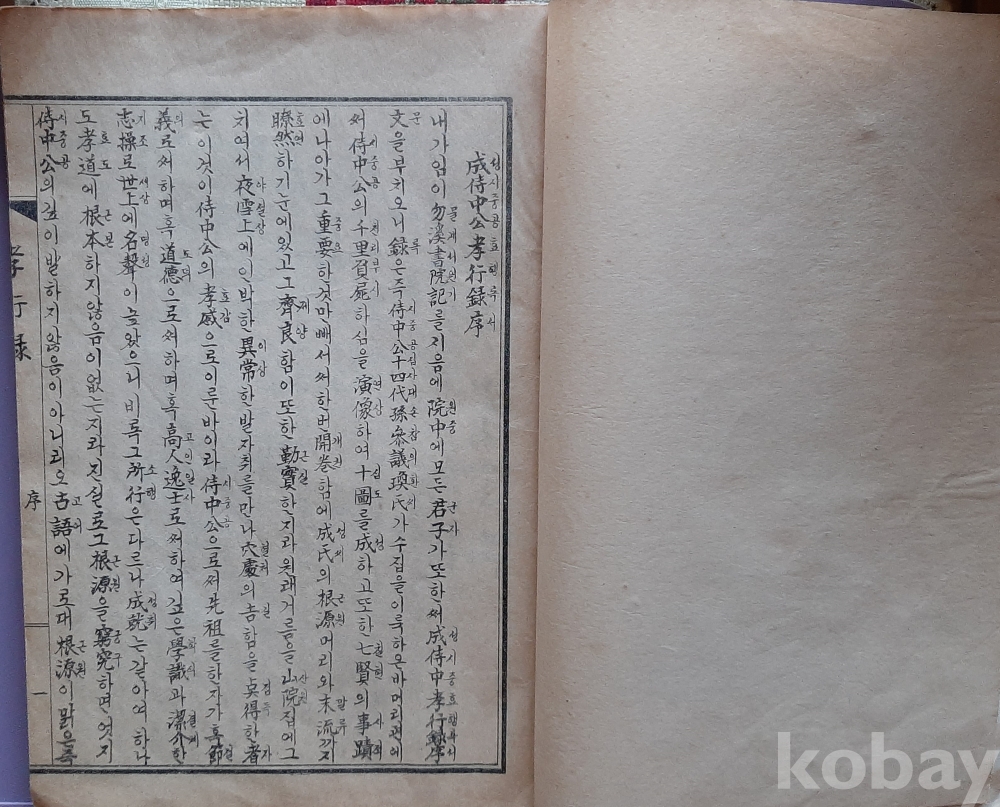 成侍中公孝行録序
내가일이勿溪書院記를지음에院中에모든君子가또한써成侍中孝行録序
文을부치오니録은즉侍中公十四代孫參議瑍氏가수집을이룩하온바머리편에
써侍中公의千里負屍하심을演像하여十圖를成하고또한七賢의事蹟
에나아가그重要한것만빼서써하번開卷함에成氏의根源머리와末流까지
瞭然하기눈에있고그齊良함이또한勤實한지라원래거름을山院집에그
치여서夜雪上에인박하異常한발자취를만나穴處의吉함을奌得한者
는이것이侍中公의孝感으로이룬바이라侍中公으로써先祖를한자가혹節
義로써하며혹道德으로써하며혹高人逸士로써하여깊은學識과潔介한
志操로世上에名聲이높았으니비록그所行은다르나成就는같아여하나
도孝道에根本하지않음이없는지라진실로그根源을窮究하면엇지
侍中公의깊이발하지않음이아니리오古語에가로대根源이맑은즉
孝行録
序
一
kobay